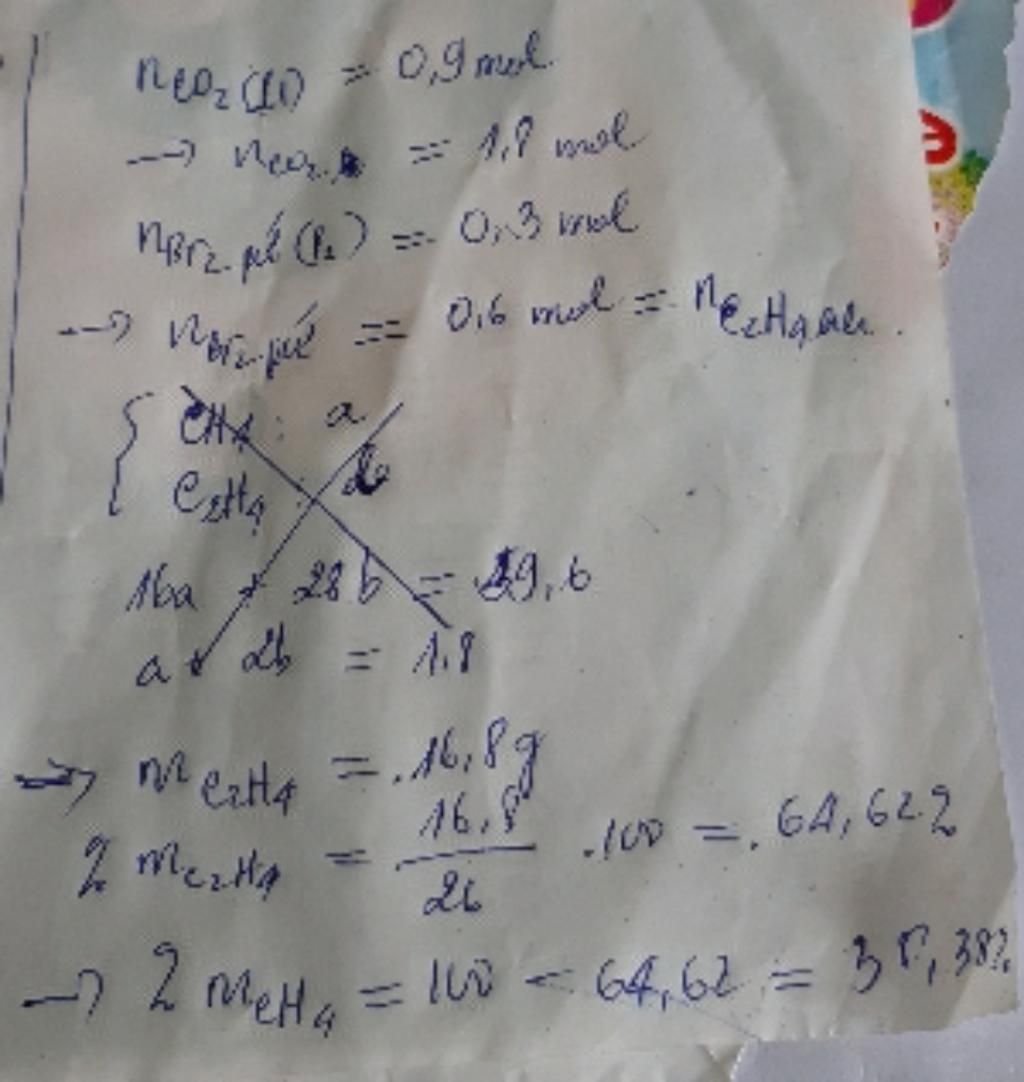 nCO₂ (P1) = 0,9 mol
→ nCO₂ = 1,8 mol
nBr₂ pứ (P2) = 0,3 mol
→ nBr₂ pứ = 0,6 mol = nC₂H₄
CH₄ : a
C₂H₄ : b
16a + 28b = 29,6
a + 2b = 1,8
→ mC₂H₄ = 16,8g
% mC₂H₄ = 16,8 / 26 .100 = 64,62%
→ % mCH₄ = 100 - 64,62 = 35,38%